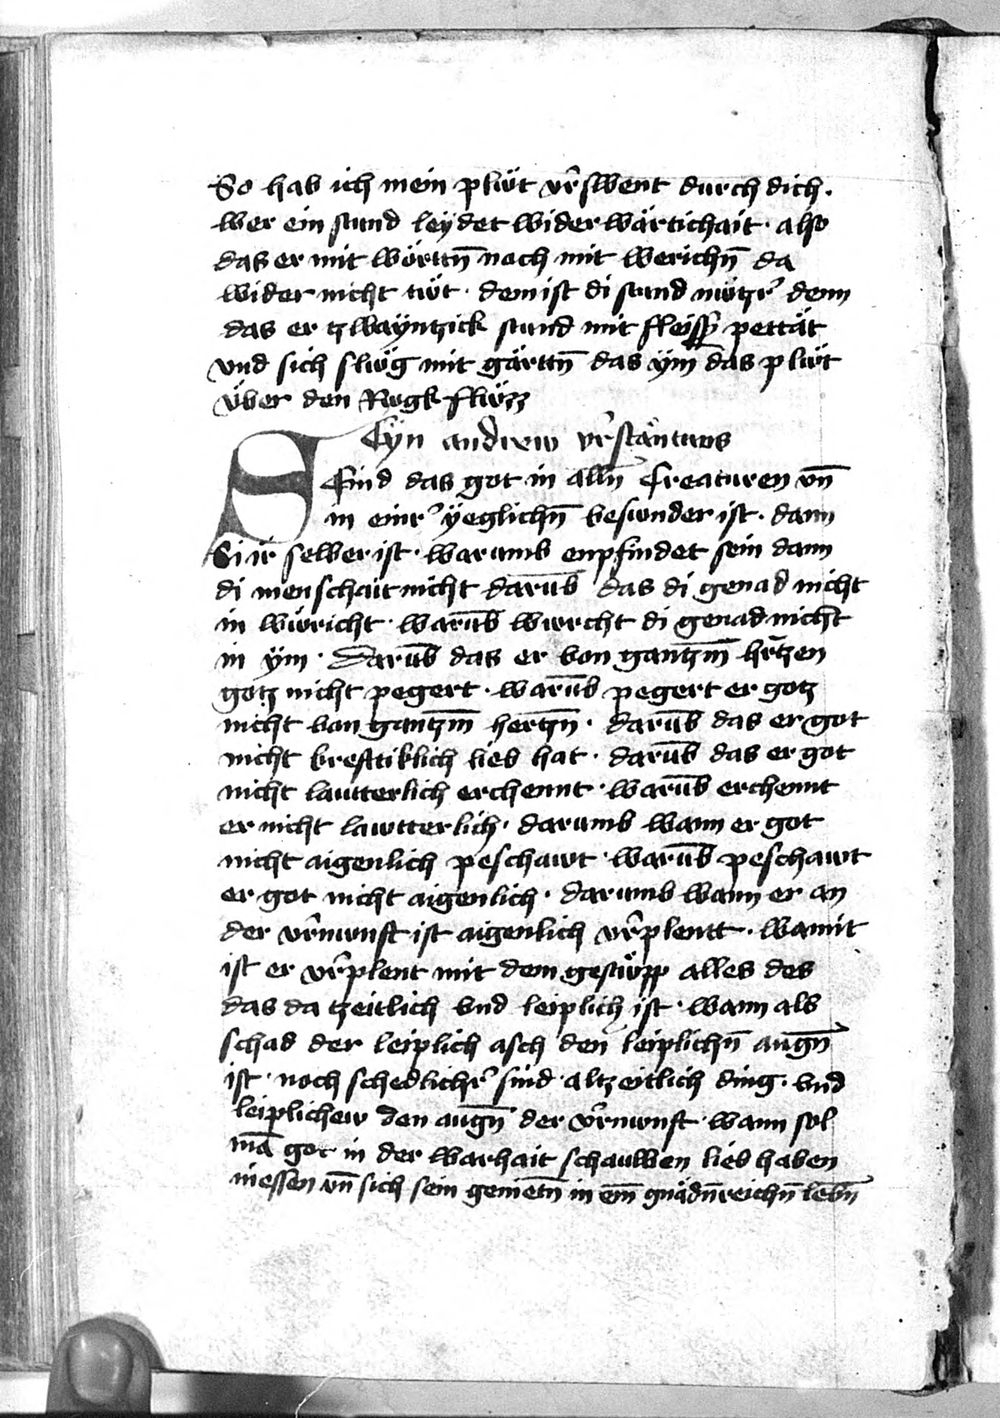 So hab ich mein plüt vr̄swent durch dich.
wer ein stund leydet widerwärtichait · also
das er mit wörttn̄ noch mit werichn̄ da
wider nicht tüt · dem ist di stund nützr̄ denn
das er tzwaÿntzick stund mit fleiss pettät
vnd sich slüg mit gärttn̄ das ÿm das plüt
über den Rugk flüzz
Eÿn andrew vr̄stäntnus
Sind das got in alln̄ Creaturen vn̄
in einr̄ ÿeglichn̄ besunder ist · dann
Si ir selber ist · warumb enpfindet sein dann
di menschait nicht darūb das di genad nicht
in würicht · warūb wurcht di genad nicht
in ÿm · Darūb das er von gantzm̄ hr̄tzen
gotz nicht pegert · warūb pegert er gotz
nicht von gantzm̄ hertzn̄ · darūb das er got
nicht krefftiklich lieb hat · darūb das er got
nicht lautterlich erchennt · warūb erchennt
er nicht lawtterlich · darumb wann er got
nicht aigenlich peschawt · warūb peschawt
er got nicht aigenlich · darumb wann er an
der vr̄nunft ist aigenlich vr̄plentt · wamit
ist er vr̄plent mit dem gestüpp alles des
das da tzeitlich vnd leiplich ist · wann als
schad der leiplich asch den leiplichn̄ augn̄
ist · noch schedlichr̄ sind altzeitlich ding · vnd
leiplichew den augn̄ der vr̄nunft · wann sol
mā got in der warhait schauwen lieb haben
niessen vn̄ sich sein genietn̄ in em̄ gnädn̄reichn̄ lebn̄